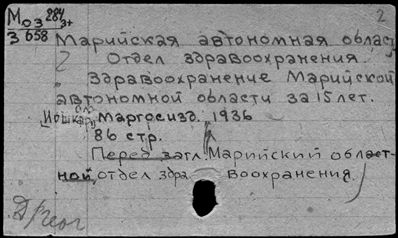 Моз 284 3+ 2
3 658 Марийская автономная област
2 Отдел здравоохранения.
Здравоохранение Марийской
автономной области за 15 лет.
Йошкар-Ола, Маргосизд. 1936
86 стр.
Перед загл.: Марийский област-
ной отдел здравоохранения.